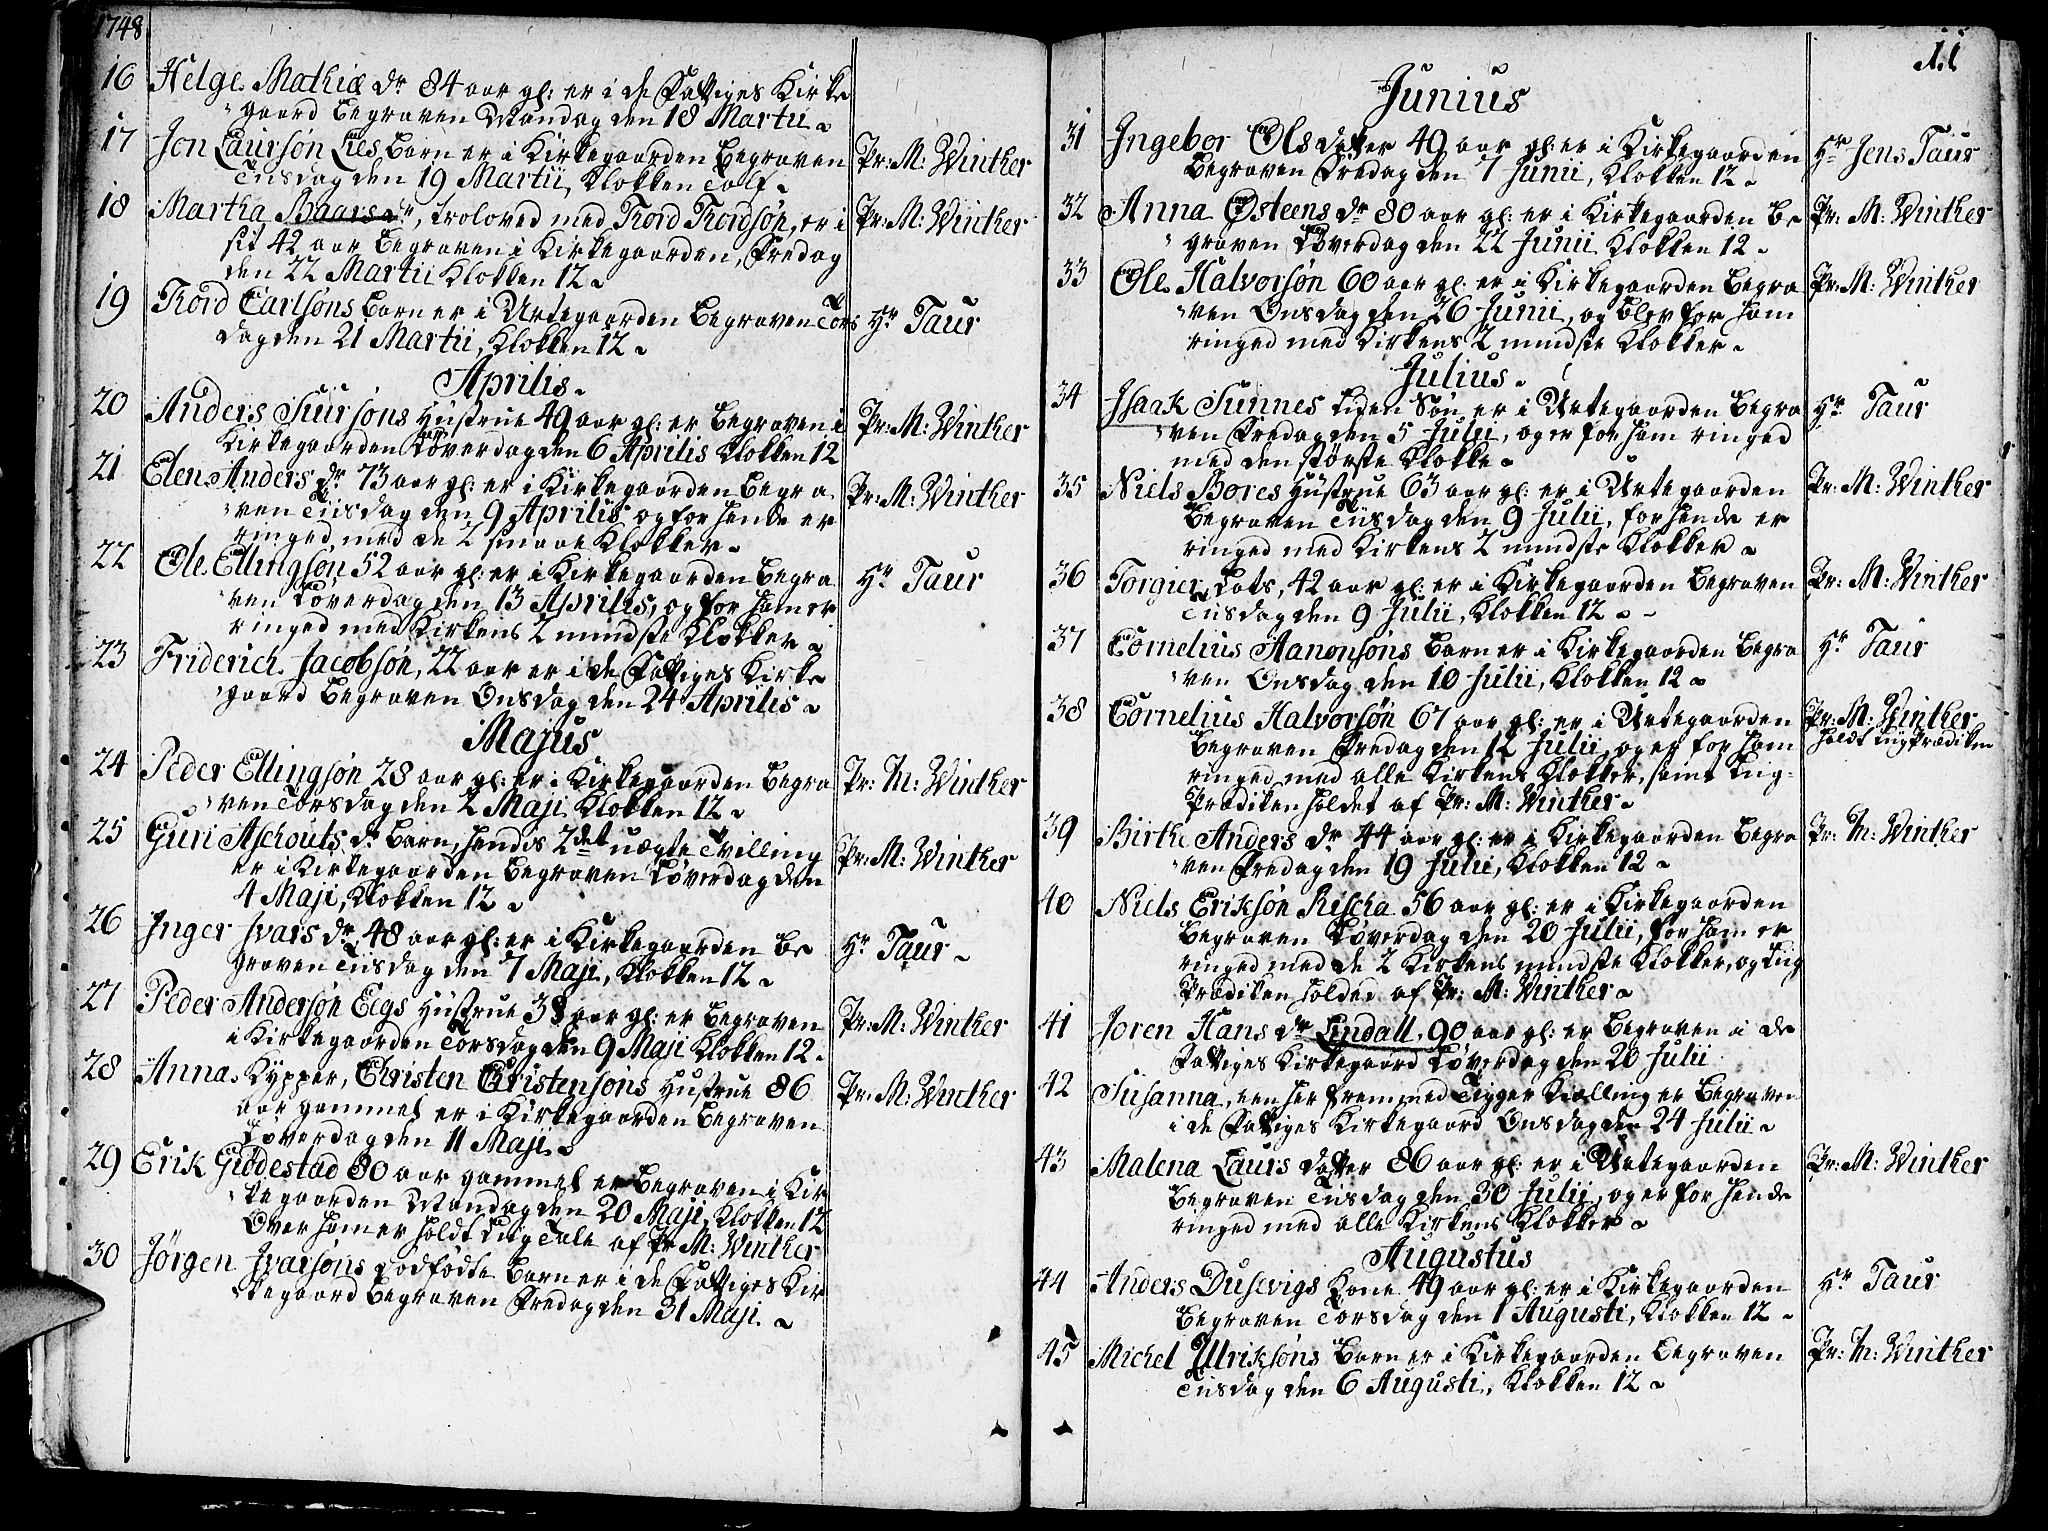 1748
16 Helge Mathiæ dr 84 aar gl: er i de Fattiges Kirke
gaard Begraven Mandag den 18 Martii
17 Jon Laursøn Lies Barn er i Kirkegaarden Begraven
Tiisdag den 19 Martii, Klokken Tolf.
Pr: M: Winther
18 Martha Baarsdr, troloved med Tord Tordsøn, er i
sit 42 aar Begraven i Kirkegaarden, Fredag
den 22 Martii Klokken 12
Pr: M: Winther
19 Tord Carlsøns Barn er i Urtegaarden Begraven Tors
dag den 21 Martii, Klokken 12
Hr Taur
Aprilis
20 Anders Siursøns Hustrue 49 aar gl: er Begraven i
Kirkegaarden Løverdag den 6 Aprilis Klokken 12
Pr: M: Winther
21 Elen Anders dr 73 aar gl: er i Kirkegaarden Begra
ven Tiisdag den 9 Aprilis og for hende er
ringed med de 2 smaae Klokker
Pr: M: Winther
22 Ole Ellingsøn 52 aar gl: er i Kirkegaarden Begra
ven Løverdag den 13 Aprilis, og for ham er
ringed med Kirkens 2 mindste Klokker
Hr Taur
23 Friderich Jacobsøn, 22 aar er i de Fattiges Kirke
gaard Begraven Onsdag den 24 Aprilis
Majus
24 Peder Ellingsøn 28 aar gl: er i Kirkegaarden Begra
ven Torsdag den 2 Maji Klokken 12
Pr: M: Winther
25 Guri Aschouts dr Barn, hendis 2det uægte Tvilling
er i Kirkegaarden Begraven Løverdag den
4 Maji, Klokken 12
Pr: M: Winther
26 Inger Ivars dr 48 aar gl: er i Kirkegaarden Be
graven Tiisdag den 7 Maji, Klokken 12
Hr Taur
27 Peder Andersøn Eegs Hustrue 38 aar gl: er Begraven
i Kirkegaarden Torsdag den 9 Maji Klokken 12
Pr: M: Winther
28 Anna Kypper, Christen Christensøns Hustrue 86
aar gammel er i Kirkegaarden Begraven
Løverdag den 11 Maji
Pr: M: Winther
29 Erik Giddestad 80 aar gammel er Begraven i Kir
kegaarden Mandag den 20 Maji, Klokken 12
Over ham er holdt Liig Tale af Pr M: Winther
30 Jørgen Ivarsøns dødfødte Barn er i de Fattiges Kir
kegaard Begraven Fredag den 31 Maji
11
Junius
31 Ingebor Ols datter 49 aar gl: er i Kirkegaarden
Begraven Fredag den 7 Junii, Klokken 12
Hr Jens Taur
32 Anna Østeens dr 80 aar gl: er i Kirkegaarden Be
graven Løverdag den 22 Junii Klokken 12
Pr: M: Winther
33 Ole Halvorsøn 60 aar gl: er i Kirkegaarden Begra
ven Onsdag den 26 Junii, og blev for ham
ringed med Kirkens 2 mindste Klokker
Pr: M: Winther
Julius
34 Isaak Sunnes liden Søn er i Urtegaarden Begra
ven Fredag den 5 Julii, og er for ham ringed
med den største Klokke
Hr Taur
35 Niels Bores Hustrue 63 aar gl: er i Urtegaarden
Begraven Tiisdag den 9 Julii, for hende er
ringed med Kirkens 2 mindste Klokker
Pr: M: Winther
36 Torgier Lots, 42 aar gl: er i Kirkegaarden Begraven
Tiisdag den 9 Julii, Klokken 12
Pr: M: Winther
37 Cornelius Aanonsøns Barn er i Kirkegaarden Begra
ven Onsdag den 10 Julii, Klokken 12
Hr Taur
38 Cornelius Halvorsøn 67 aar gl: er i Urtegaarden
Begraven Fredag den 12 Julii, og er for ham
ringed med alle Kirkens Klokker, samt Liig-
Prædiken holdet af Pr: M: Winther
Pr: M: Winther
holdt Liig Prædiken
39 Birthe Anders dr 44 aar gl: er i Kirkegaarden Begra
ven Fredag den 19 Julii, Klokken 12
Pr: M: Winther
40 Niels Eriksøn Rischa 56 aar gl: er i Kirkegaarden
Begraven Løverdag den 20 Julii, for ham er
ringed med de 2 Kirkens mindste Klokker, og Liig
Prædiken holdes af Pr: M: Winther
41 Joren Hans dr Lindall, 90 aar gl: er Begraven i de
Fattiges Kirkegaard Løverdag den 20 Julii
42 Susanna, een her fremmed Tigger Kiælling er Begraven
i de Fattiges Kirkegaard Onsdag den 24 Julii
43 Malena Laurs datter 86 aar gl: er i Urtegaarden
Begraven Tiisdag den 30 Julii, og er for hende
ringed med alle Kirkens Klokker
Pr: M: Winther
Augustus
44 Anders Dusevigs Kone 49 aar gl: er i Kirkegaarden
Begraven Torsdag den 1 Augusti, Klokken 12
Hr Taur
45 Michel Ulriksøns Barn er i Kirkegaarden Begraven
Tiisdag den 6 Augusti, Klokken 12
Pr: M: Winther